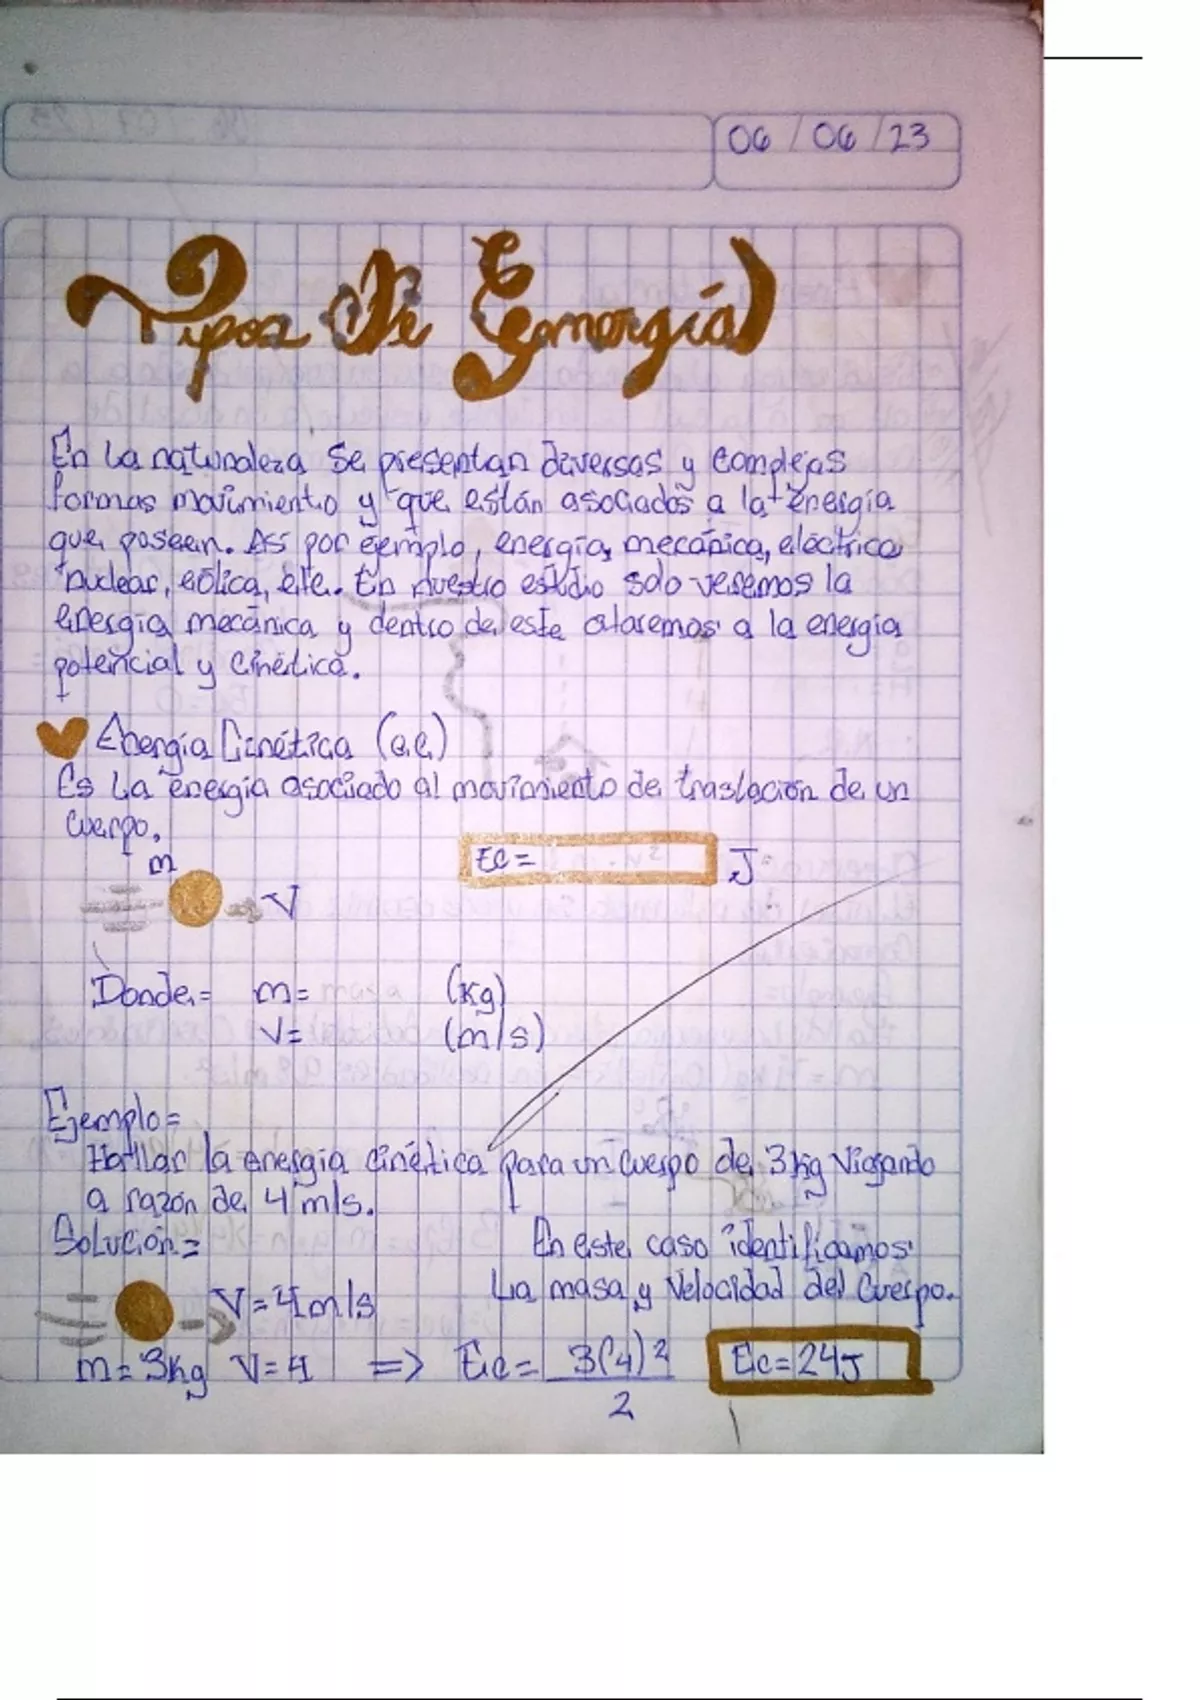 06/06/23
Tipos de Energía
En la naturaleza se presentan diversas y complejas
formas movimiento y que están asociados a la energía
que poseen. Así por ejemplo, energía, mecánica, eléctrica
nuclear, eólica, etc. En nuestro estudio solo veremos la
energía mecánica y dentro de este ataremos a la energía
potencial y cinética.
Energía Cinética (e.c)
Es La energía asociado al movimiento de traslación de un
Cuerpo.
m
Ec= J
V
Donde= m= (kg)
V= (m/s)
Ejemplo=
Hallar la energía cinética para un cuerpo de 3kg Viajando
a razón de 4 m/s.
Solución= En este caso identificamos
La masa y Velocidad del Cuerpo.
V=4m/s
m=3kg V=4 => Ec= 3(4)²/2 Ec=24J